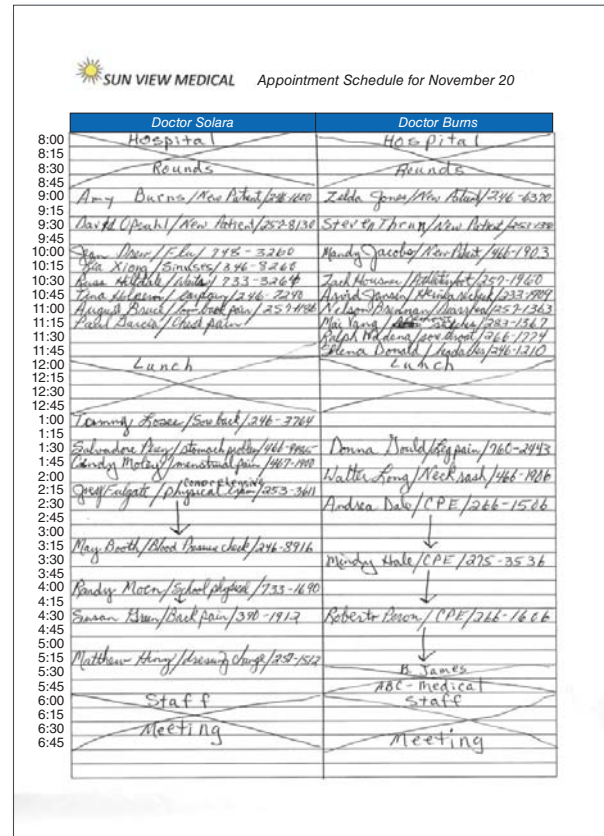 SUN VIEW MEDICAL Appointment Schedule for November 20
Doctor Solara Doctor Burns
8:00 Hospital Hospital
8:15
8:30 Rounds Rounds
8:45
9:00 Amy Burns/New Patient/246-1600 Zelda Jones/New Patient/246-6370
9:15
9:30 David Opeahl/New Patient/257-8130 Steven Thrun/New Patient/
9:45
10:00 Jean Drew/Flu/ - 3260 Mandy Jacobs/New Patient/466-1903
10:15 Kia Xiong/Sinuses/346-8260
10:30 Russ Hilldale/Warts/733-3264 Zack Housner/ /257-1960
10:45 Tina Halperin/earpain/246-7240 Arvid Jansen/ /233-1909
11:00 August Bruce/low back pain/257- Nelson Brennan/Diarrhea/257-1363
11:15 Paul Garcia/Chest pain Mai Vang/ stitches/283-1367
11:30 Ralph Madena/sore throat/266-1774
11:45 Selena Donald/headaches/246-1210
12:00 Lunch Lunch
12:15
12:30
12:45
1:00 Tammy Losee/Sore back/246-3764
1:15
1:30 Salvadore Perez/stomach problem/ Donna Gould/Leg pain/760-2443
1:45 Cindy Moten/menstrual pain/467-
2:00 Walter Long/Neck rash/466-1906
2:15 Greg Fulgate/physical exam/253-3611
2:30 Andrea Dale/CPE/266-1506
2:45
3:00
3:15 May Booth/Blood Pressure check/246-8916
3:30 Mindy Hale/CPE/275-3536
3:45
4:00 Randy Moon/School physical/733-1690
4:15
4:30 Susan Green/Back pain/390-1912 Roberto Peron/CPE/266-1606
4:45
5:00
5:15 Matthew Henry/dressing change/257-1512
5:30 B. James
5:45 ABC-medical
6:00 Staff Staff
6:15
6:30 Meeting Meeting
6:45